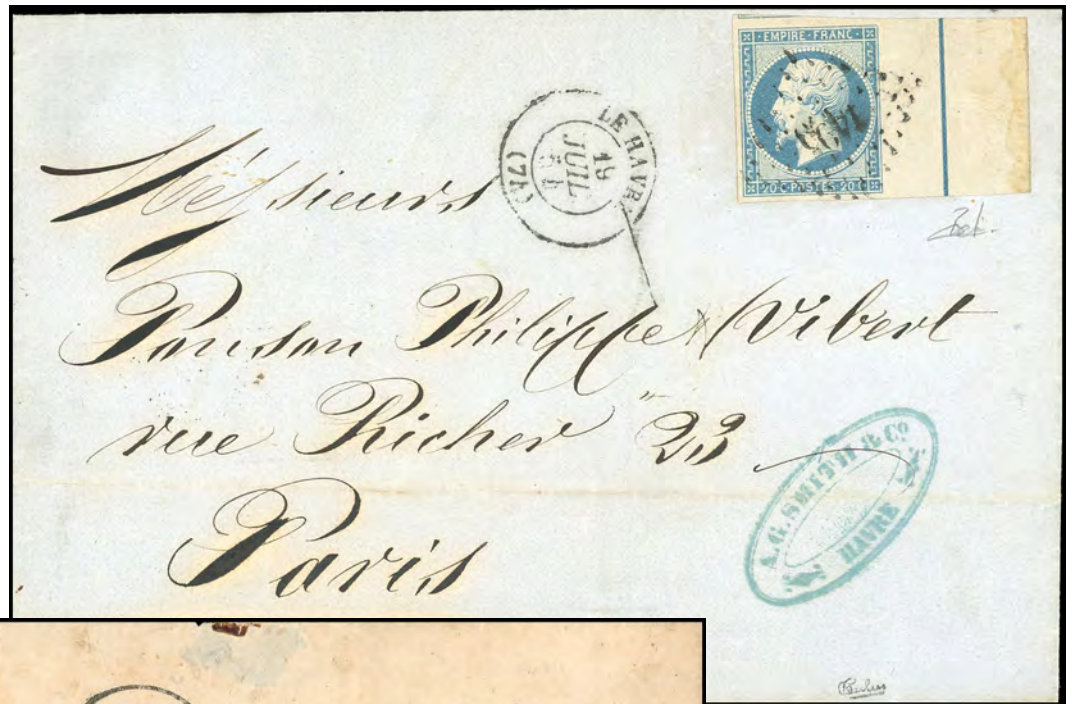 EMPIRE-FRANC
20 C POSTES 20 C
LE HAVRE
19
JUIL
(74)
Messieurs
Ponson Philippe & Vibert
rue Richer 23
Paris
A.G. SMITH & Co
HAVRE